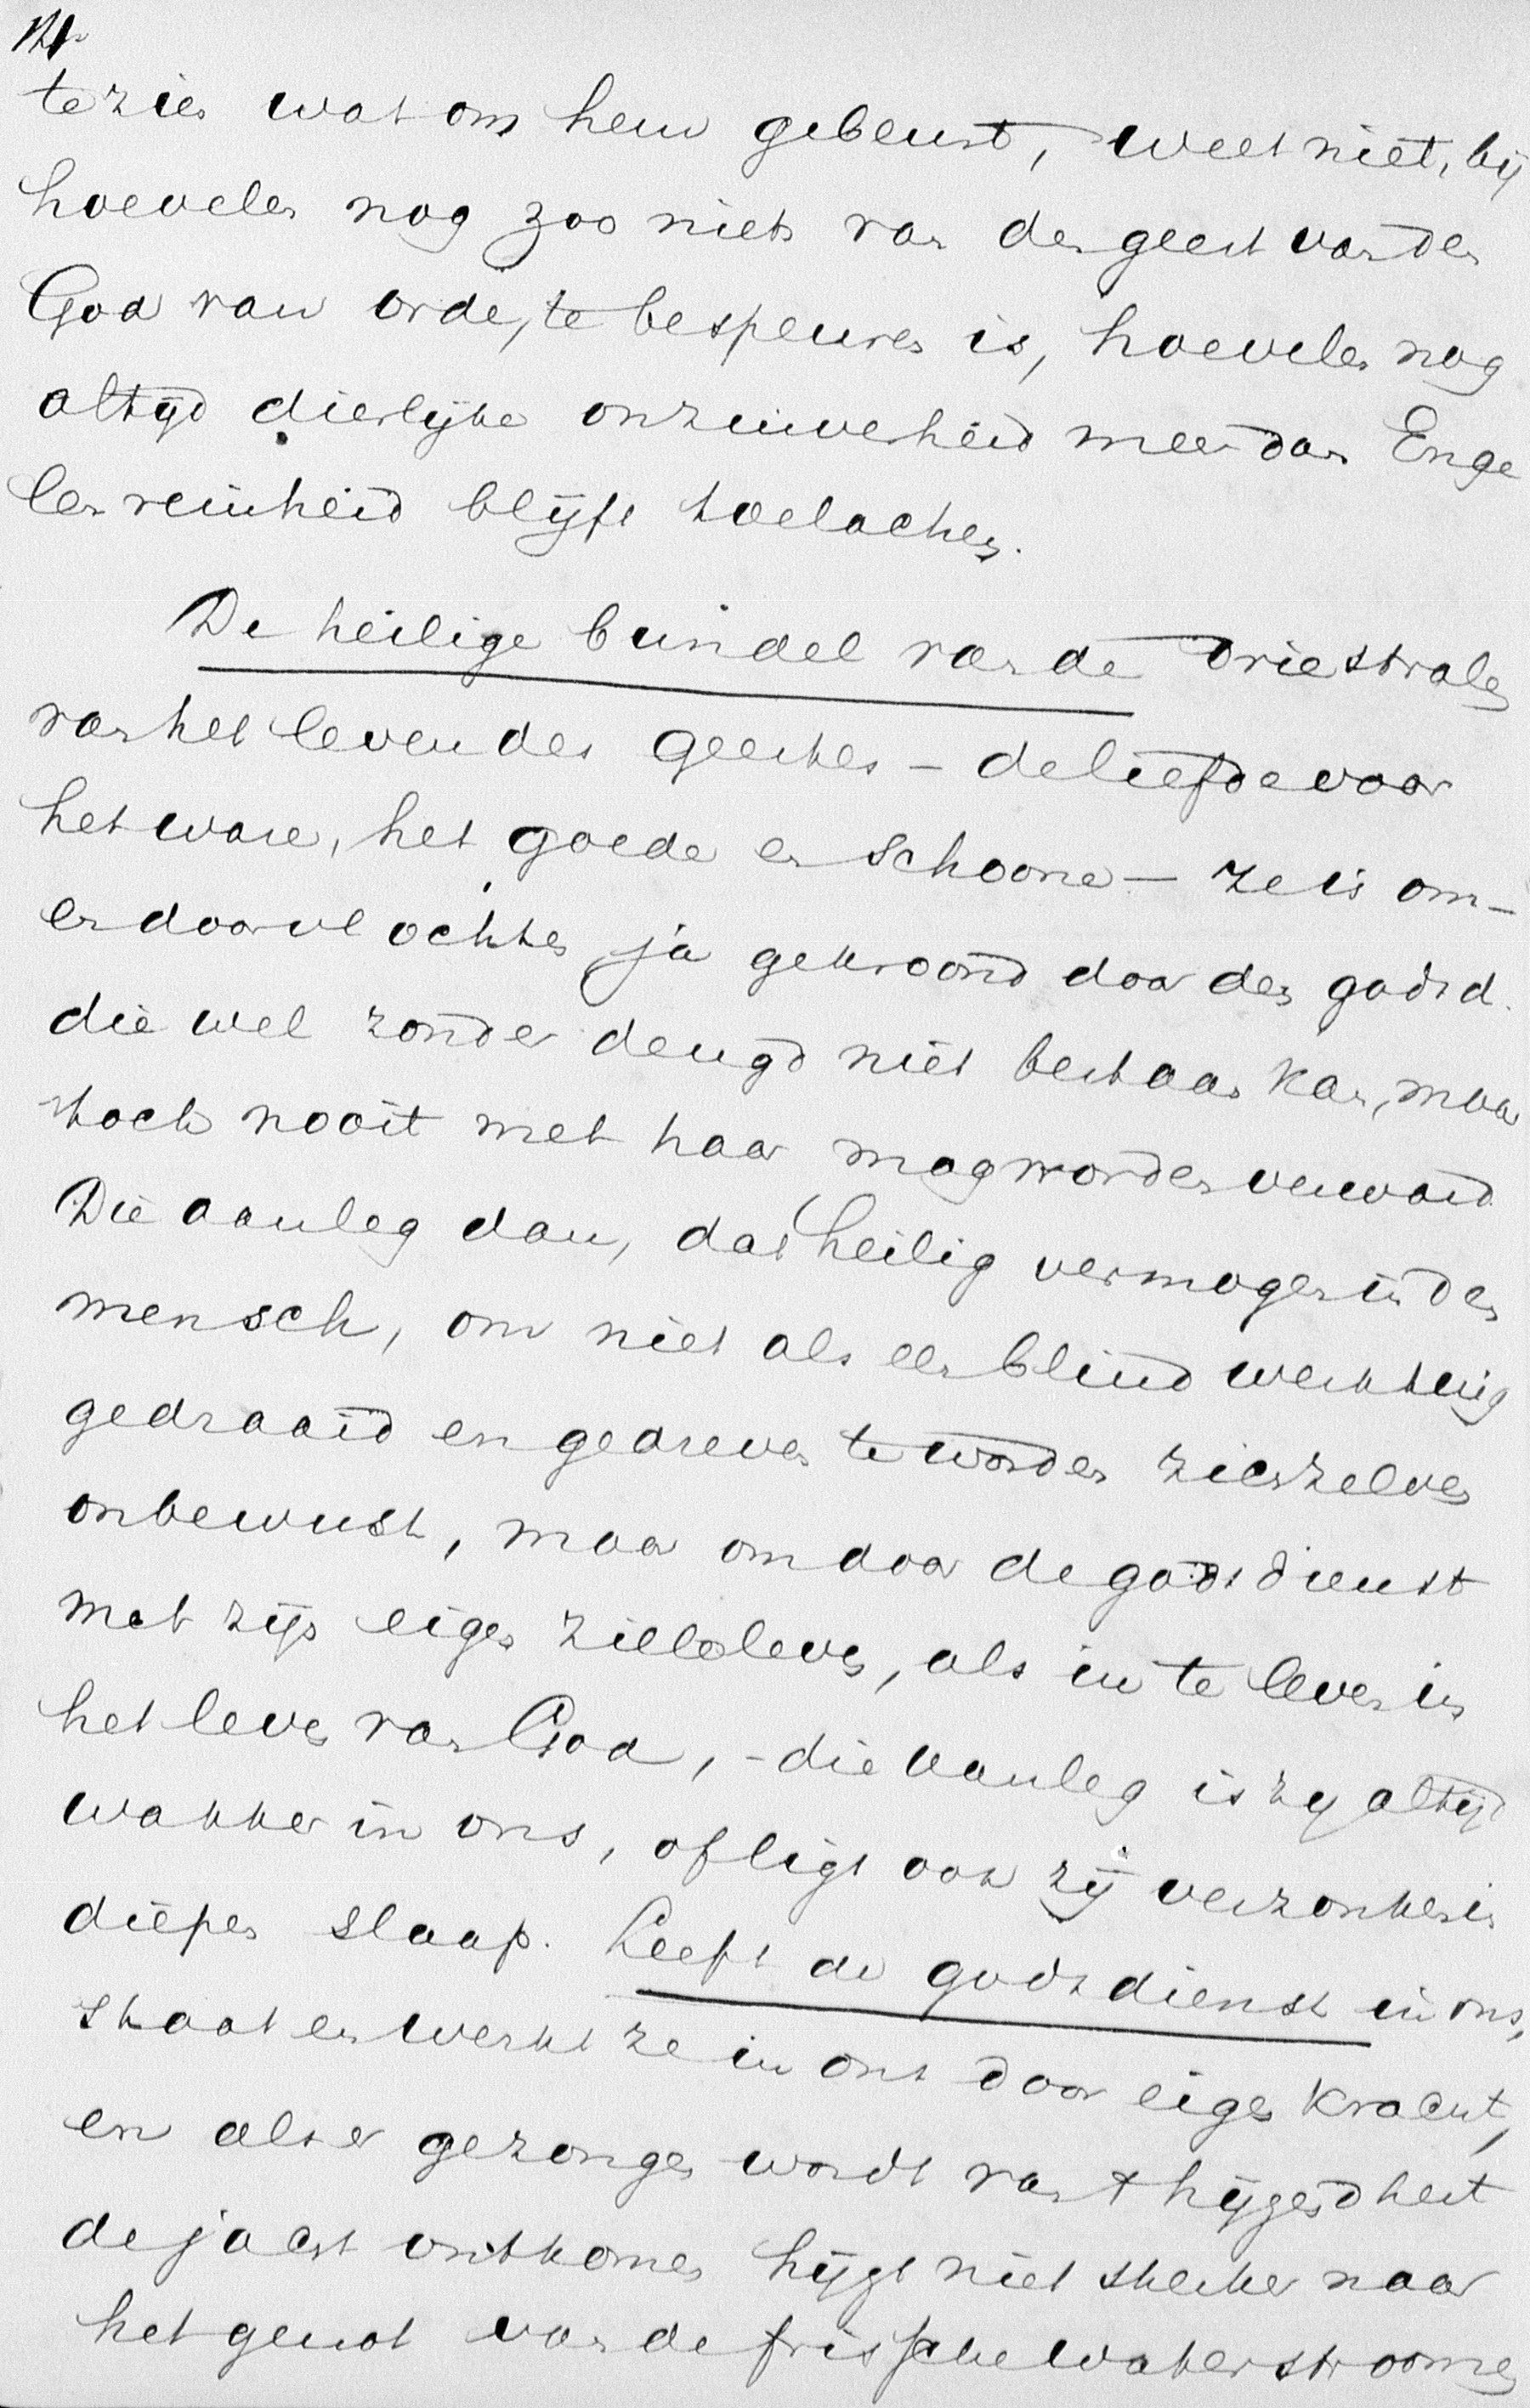 te zien wat om hem gebeurt, weet niet, bij
hoevelen nog zoo niets van den geest van den
God van orde, te bespeuren is, hoevelen nog
altijd dierlijke onzuiverheid meer dan Enge
len reinheid blijft toelachen.
De heilige bundel van de drie stralen
van het leven des geestes – de liefde voor
het ware, het goede en schoone – ze is om-
en doorvlochten ja gekroond door den godsd.
die wel zonder deugd niet bestaan kan, maar
toch nooit met haar mag worden verward.
Die aanleg dan, dat heilig vermogen in den
mensch, om niet als een blind werktuig
gedraaid en gedreven te worden zich zelven
onbewust, maar om door de godsdienst
met zijn eigen zieleleven, als in te leven in
het leven van God, – die aanleg is zij altijd
wakker in ons, of ligt ook zij verzonken in
diepen slaap. Leeft de godsdienst in ons,
staat en werkt ze in ons door eigen kracht,
en als er gezongen wordt van 't hijgend hert
de jacht ontkomen hijgt niet sterker naar
het genot van de frissche waterstroomen